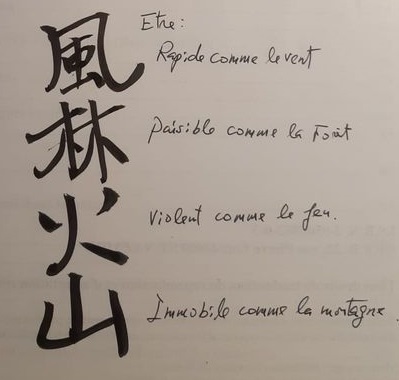 風林火山
Etre:
Rapide comme le vent
paisible comme la Forêt
violent comme le feu.
Immobile comme la montagne.